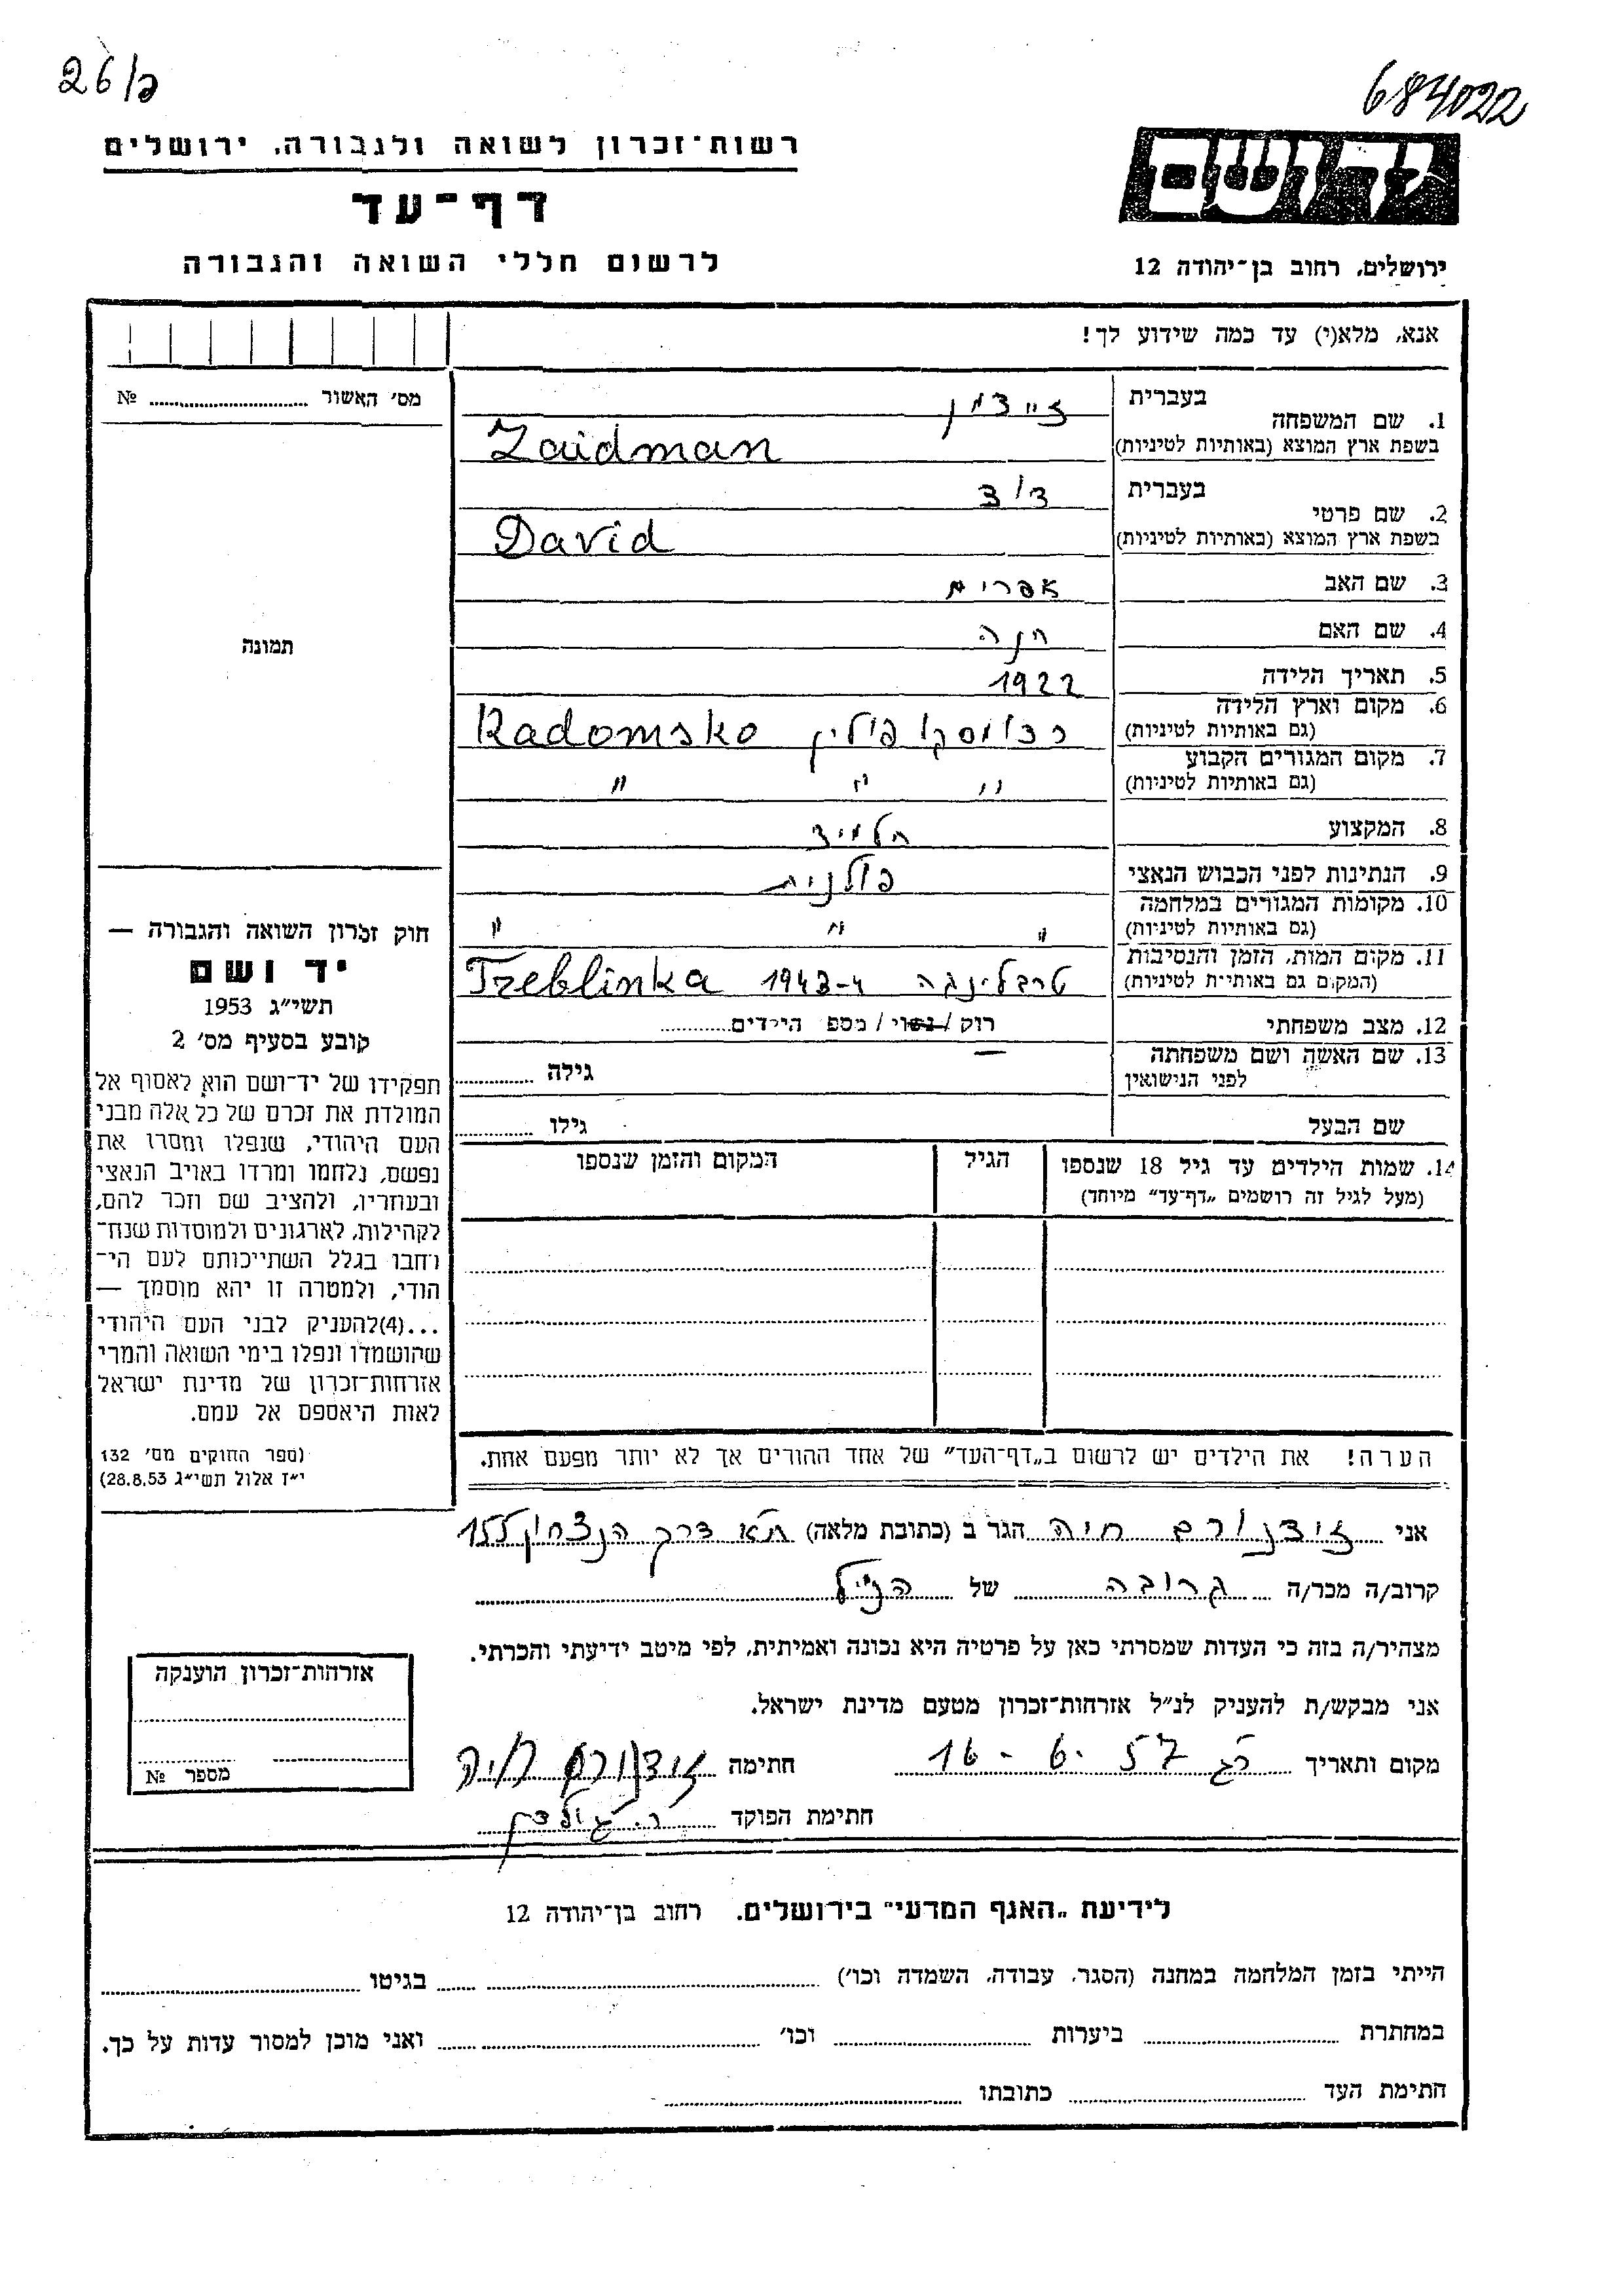 26/ק
684022
רשות־זכרון לשואה ולגבורה, ירושלים
דף־עד
לרשום חללי השואה והגבורה
יד ושם
ירושלים, רחוב בן־יהודה 12
אנא, מלא(י) עד כמה שידוע לך!
מס׳ האשור № ........
תמונה
1. שם המשפחה בעברית זיידמן
בשפת ארץ המוצא (באותיות לטיניות) Zaidman
2. שם פרטי בעברית דוד
בשפת ארץ המוצא (באותיות לטיניות) David
3. שם האב אפרים
4. שם האם חנה
5. תאריך הלידה 1922
6. מקום וארץ הלידה (גם באותיות לטיניות) רדומסקו פולין Radomsko
7. מקום המגורים הקבוע (גם באותיות לטיניות) " " "
8. המקצוע תלמיד
9. הנתינות לפני הכבוש הנאצי פולנית
10. מקומות המגורים במלחמה (גם באותיות לטיניות) " " "
11. מקום המות, הזמן והנסיבות (המקום גם באותיות לטיניות) טרבלינקה 1943-4 Treblinka
12. מצב משפחתי רוק / נשוי / מספ הילדים........
13. שם האשה ושם משפחתה לפני הנישואין — גילה ........
שם הבעל גילו ........
14. שמות הילדים עד גיל 18 שנספו (מעל לגיל זה רושמים „דף־עד” מיוחד)
הגיל
המקום והזמן שנספו
חוק זכרון השואה והגבורה —
יד ושם
תשי״ג 1953
קובע בסעיף מס׳ 2
תפקידו של יד־ושם הוא לאסוף אל
המולדת את זכרם של כל אלה מבני
העם היהודי, שנפלו ומסרו את
נפשם, נלחמו ומרדו באויב הנאצי
ובעוזריו, ולהציב שם וזכר להם,
לקהילות, לארגונים ולמוסדות שנח־
רחבו בגלל השתייכותם לעם הי־
הודי, ולמטרה זו יהא מוסמך —
...(4)להעניק לבני העם היהודי
שהושמדו ונפלו בימי השואה והמרי
אזרחות־זכרון של מדינת ישראל
לאות היאספם אל עמם.
(ספר החוקים מס׳ 132
י״ז אלול תשי״ג 28.8.53)
הערה! את הילדים יש לרשום ב„דף־העד” של אחד ההורים אך לא יותר מפעם אחת.
אני זידנורם חיה הגר ב (כתובת מלאה) ת״א דרך הנצחון 155
קרוב/ה מכר/ה קרובה של הנ״ל
מצהיר/ה בזה כי העדות שמסרתי כאן על פרטיה היא נכונה ואמיתית, לפי מיטב ידיעתי והכרתי.
אני מבקש/ת להעניק לנ״ל אזרחות־זכרון מטעם מדינת ישראל.
מקום ותאריך רג 16-6.57 חתימה זידנורם חיה
חתימת הפוקד ר. גולדמן
אזרחות־זכרון הוענקה
מספר №
לידיעת „האגף המדעי” בירושלים, רחוב בן־יהודה 12
הייתי בזמן המלחמה במחנה (הסגר, עבודה, השמדה וכו׳) ........ בגיטו ........
במחתרת ........ ביערות ........ וכו׳ ........ ואני מוכן למסור עדות על כך.
חתימת העד ........ כתובתו ........